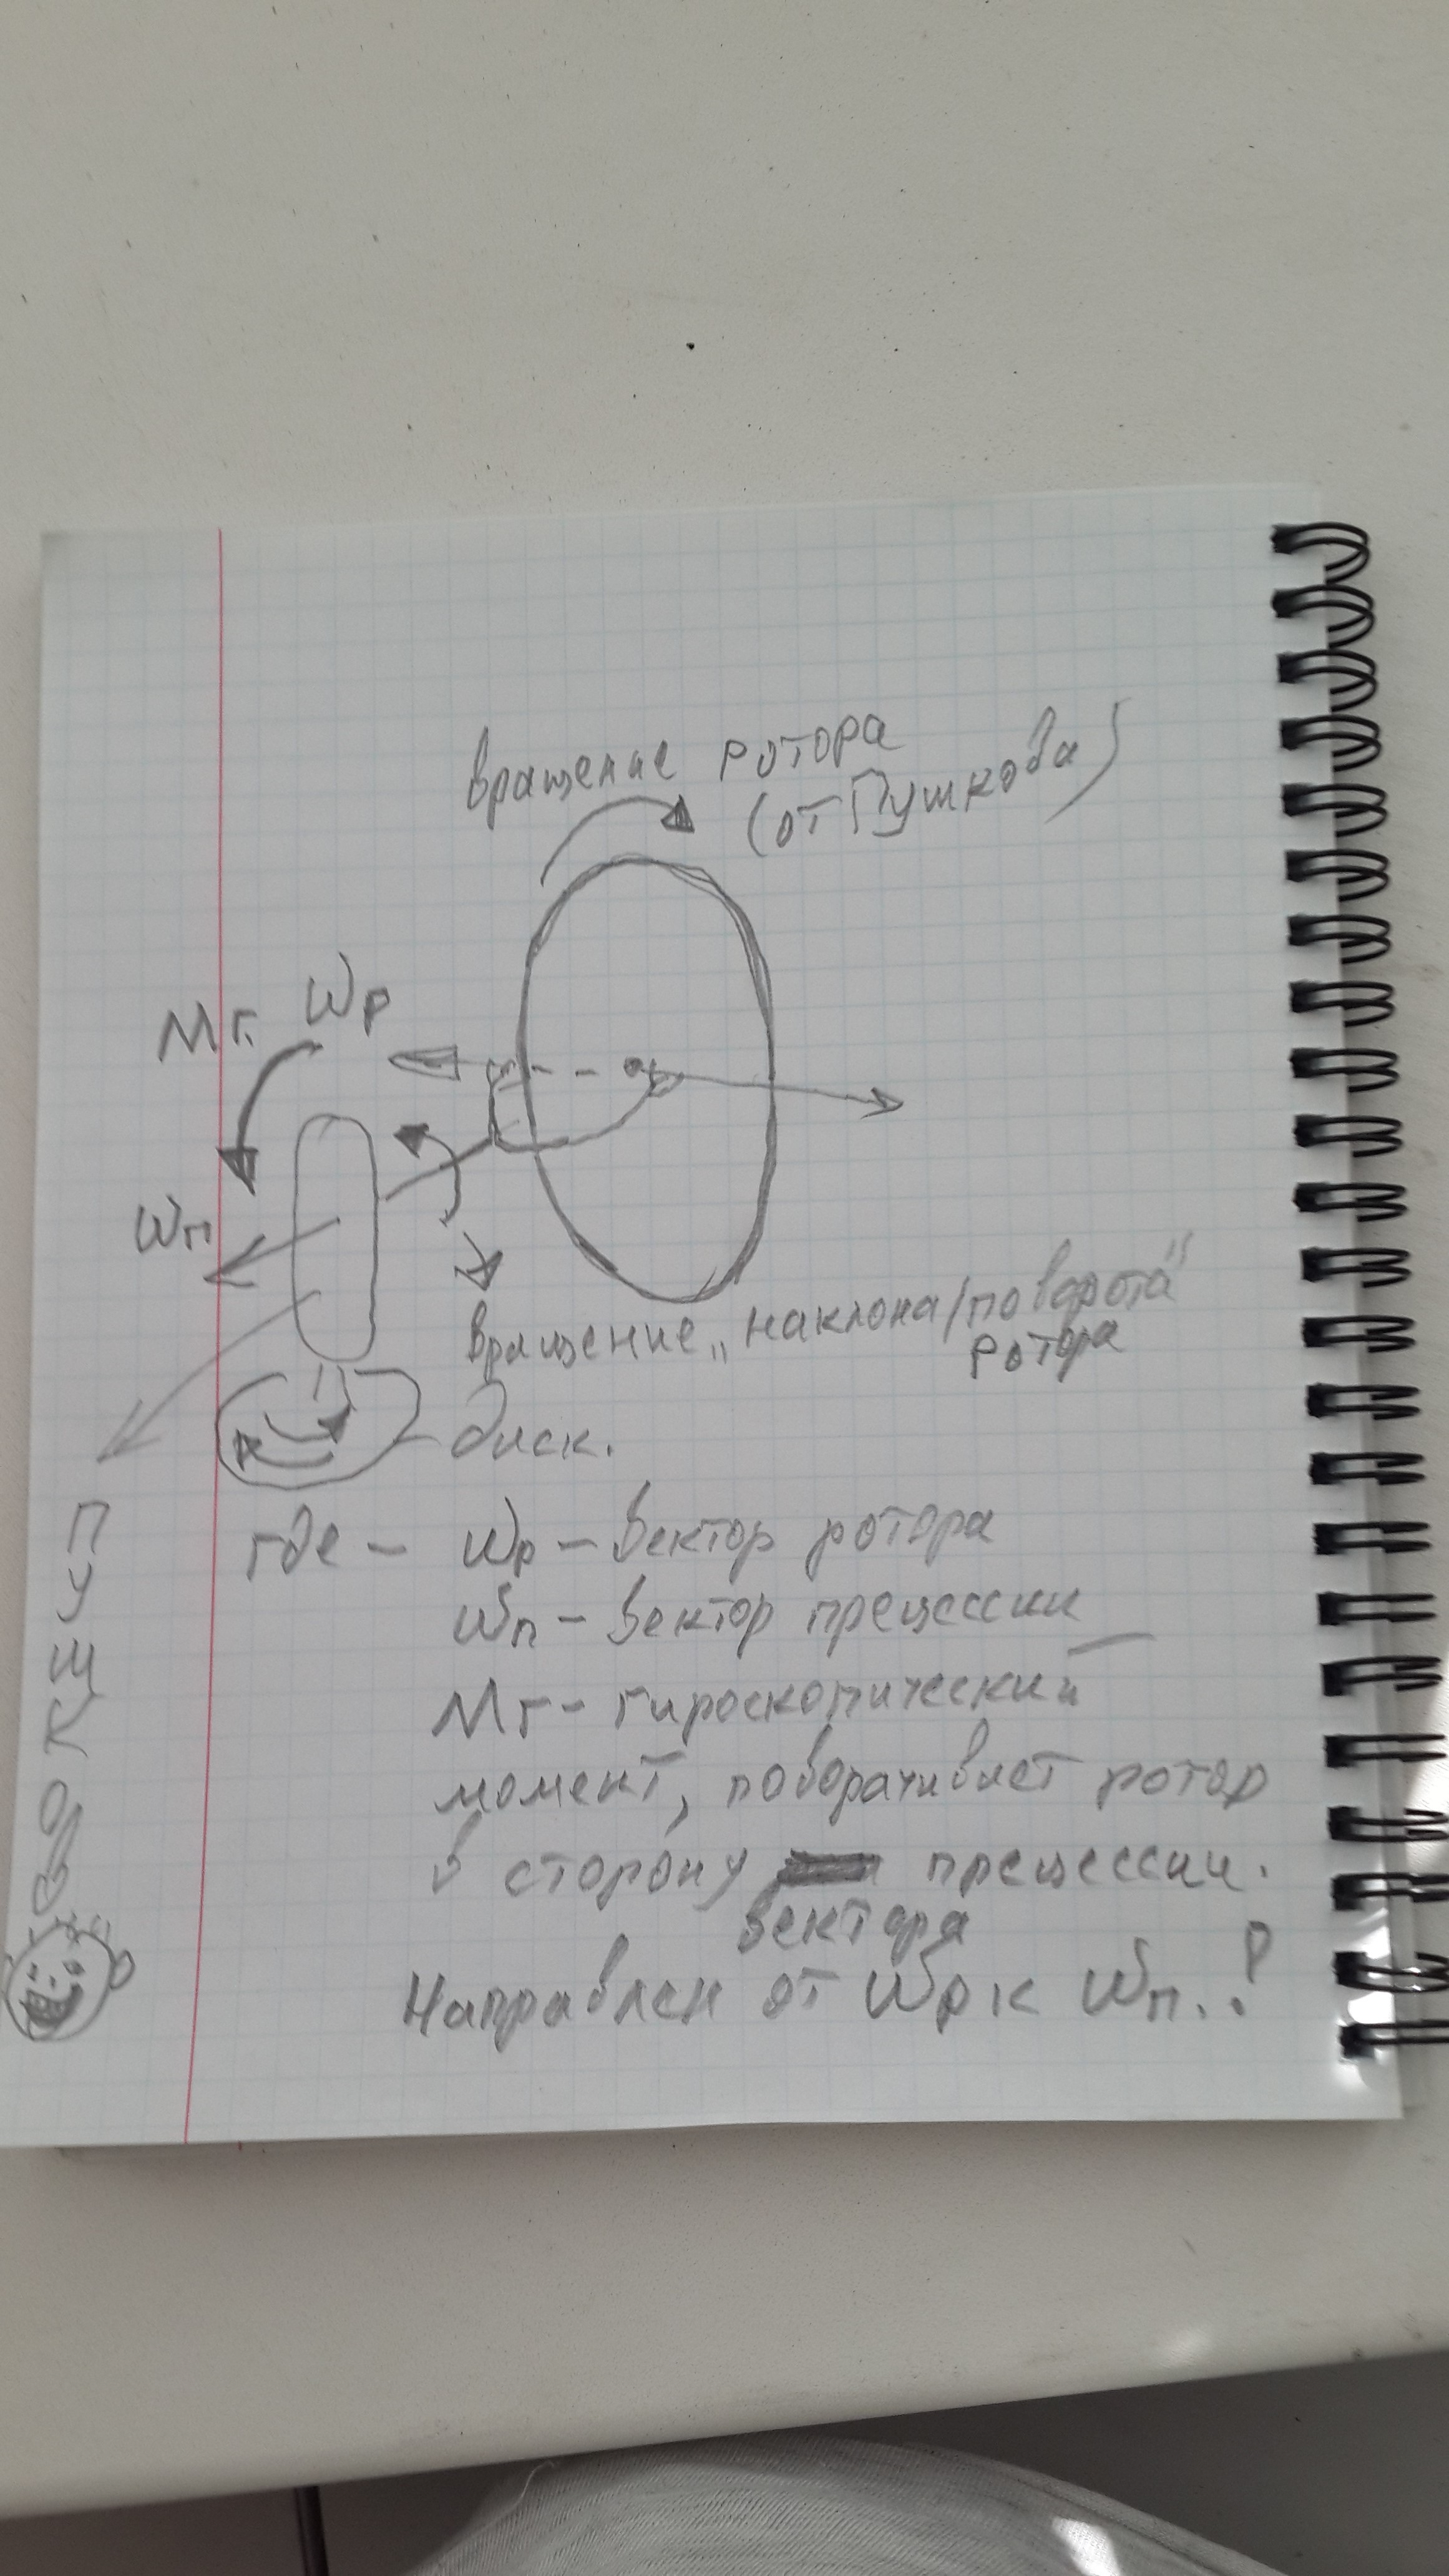 вращение ротора
(от Пушкова)
Мг. Wр
Wп
вращение „наклона/поворота"
ротора
диск.
где – Wр – вектор ротора
Wп – вектор прецессии
Мг – гироскопический
момент, поворачивает ротор
в сторону прецессии.
вектора
Направлен от Wр к Wп..!
ПУШКОВ